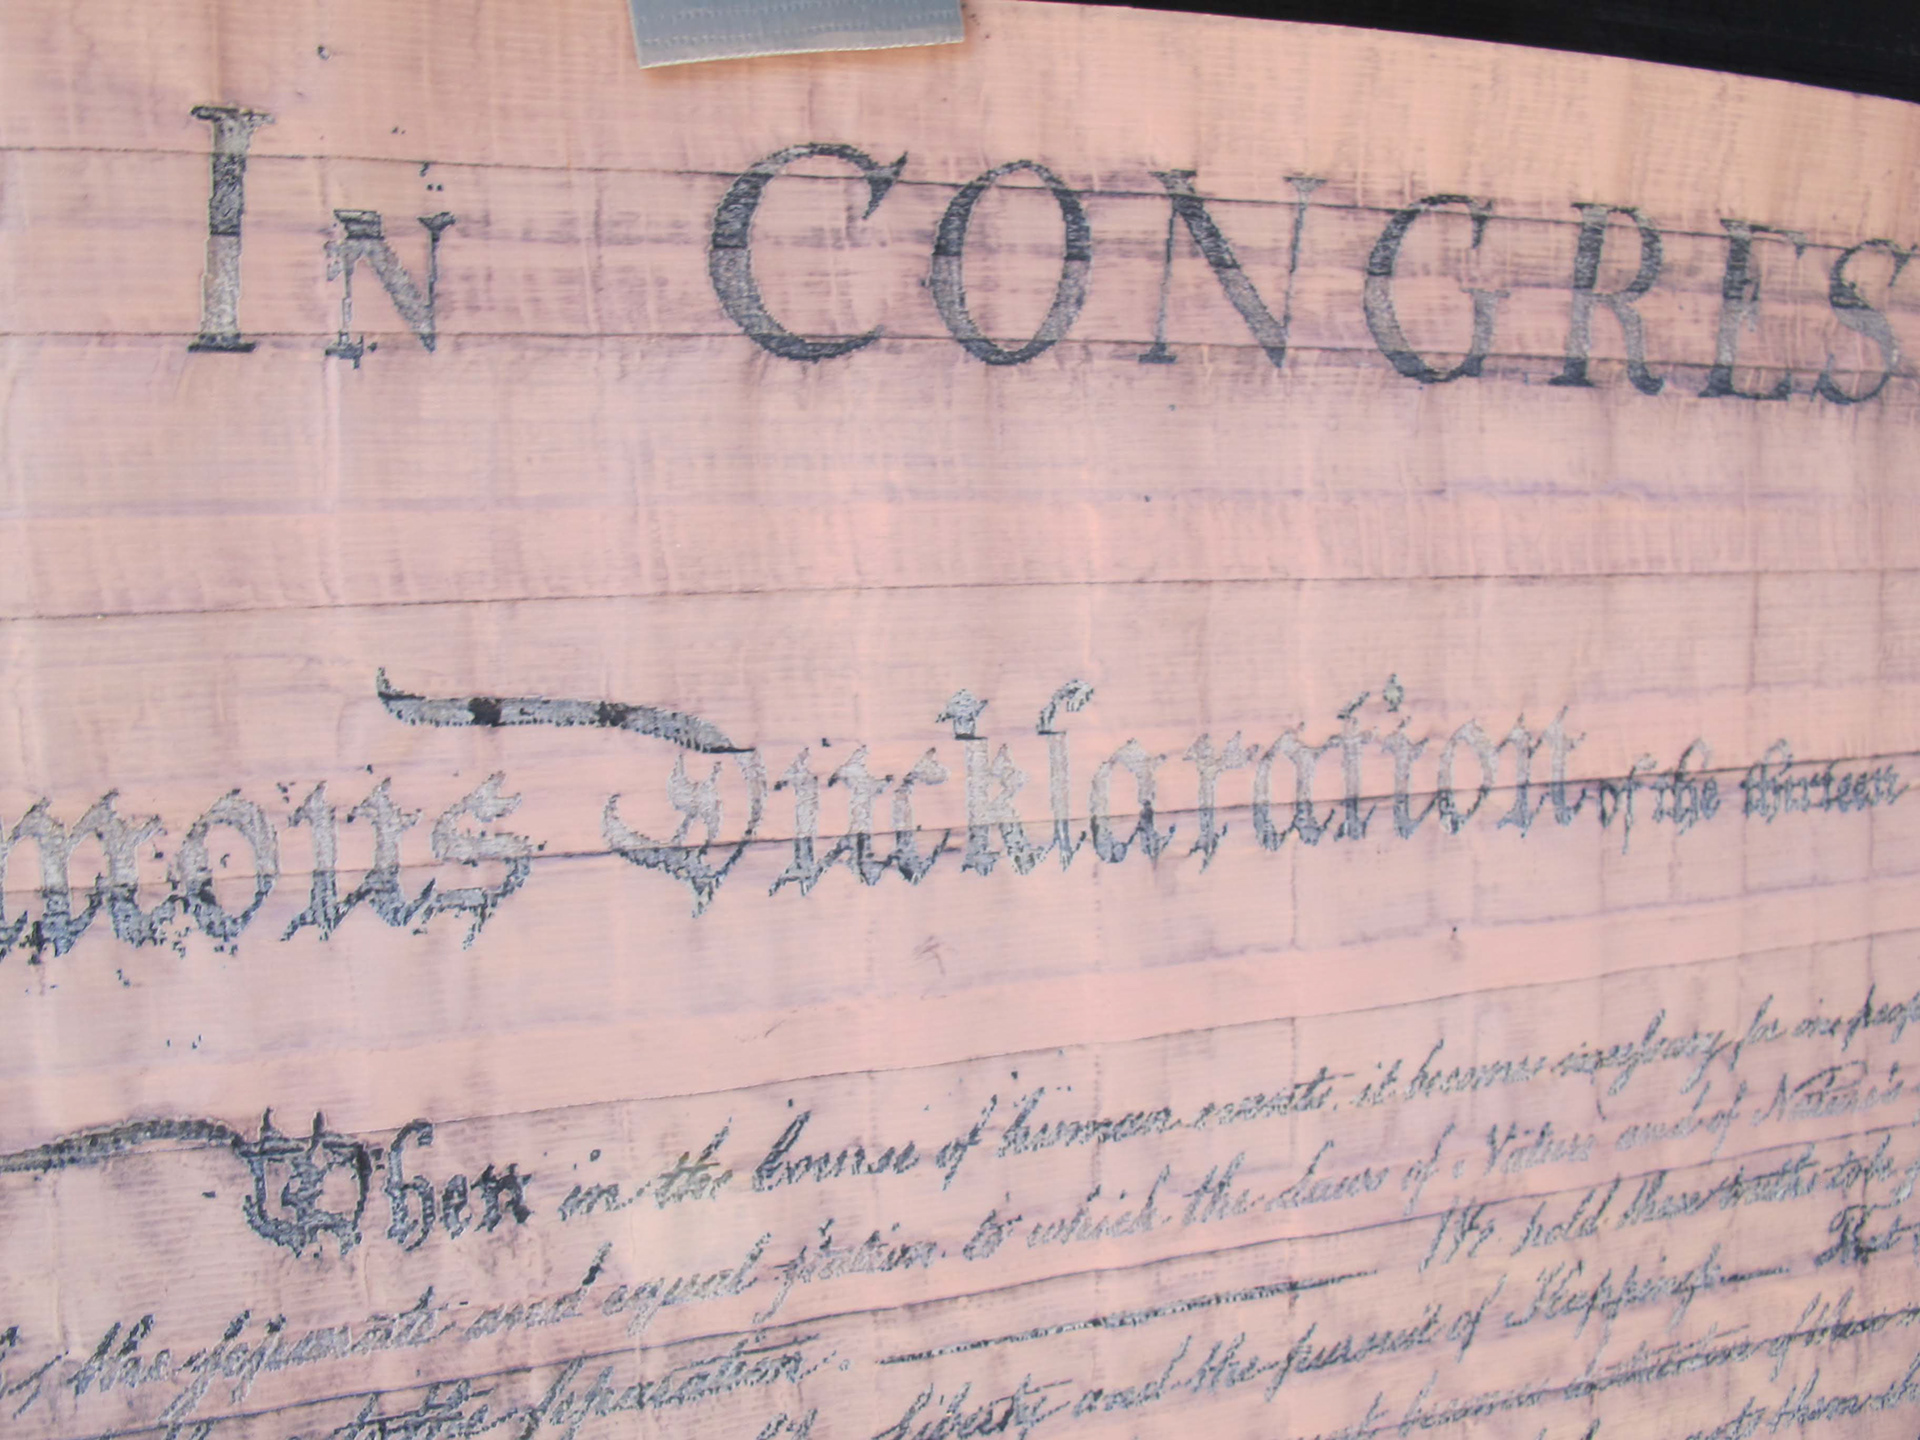 IN CONGRES
mous Declaration of the thirteen
When in the Course of human events, it becomes necessary for one peop
the separate and equal station to which the Laws of Nature and of Nature's
to the separation. We hold these truths to be
Liberty and the pursuit of Happiness. That
becomes destructive of these
them